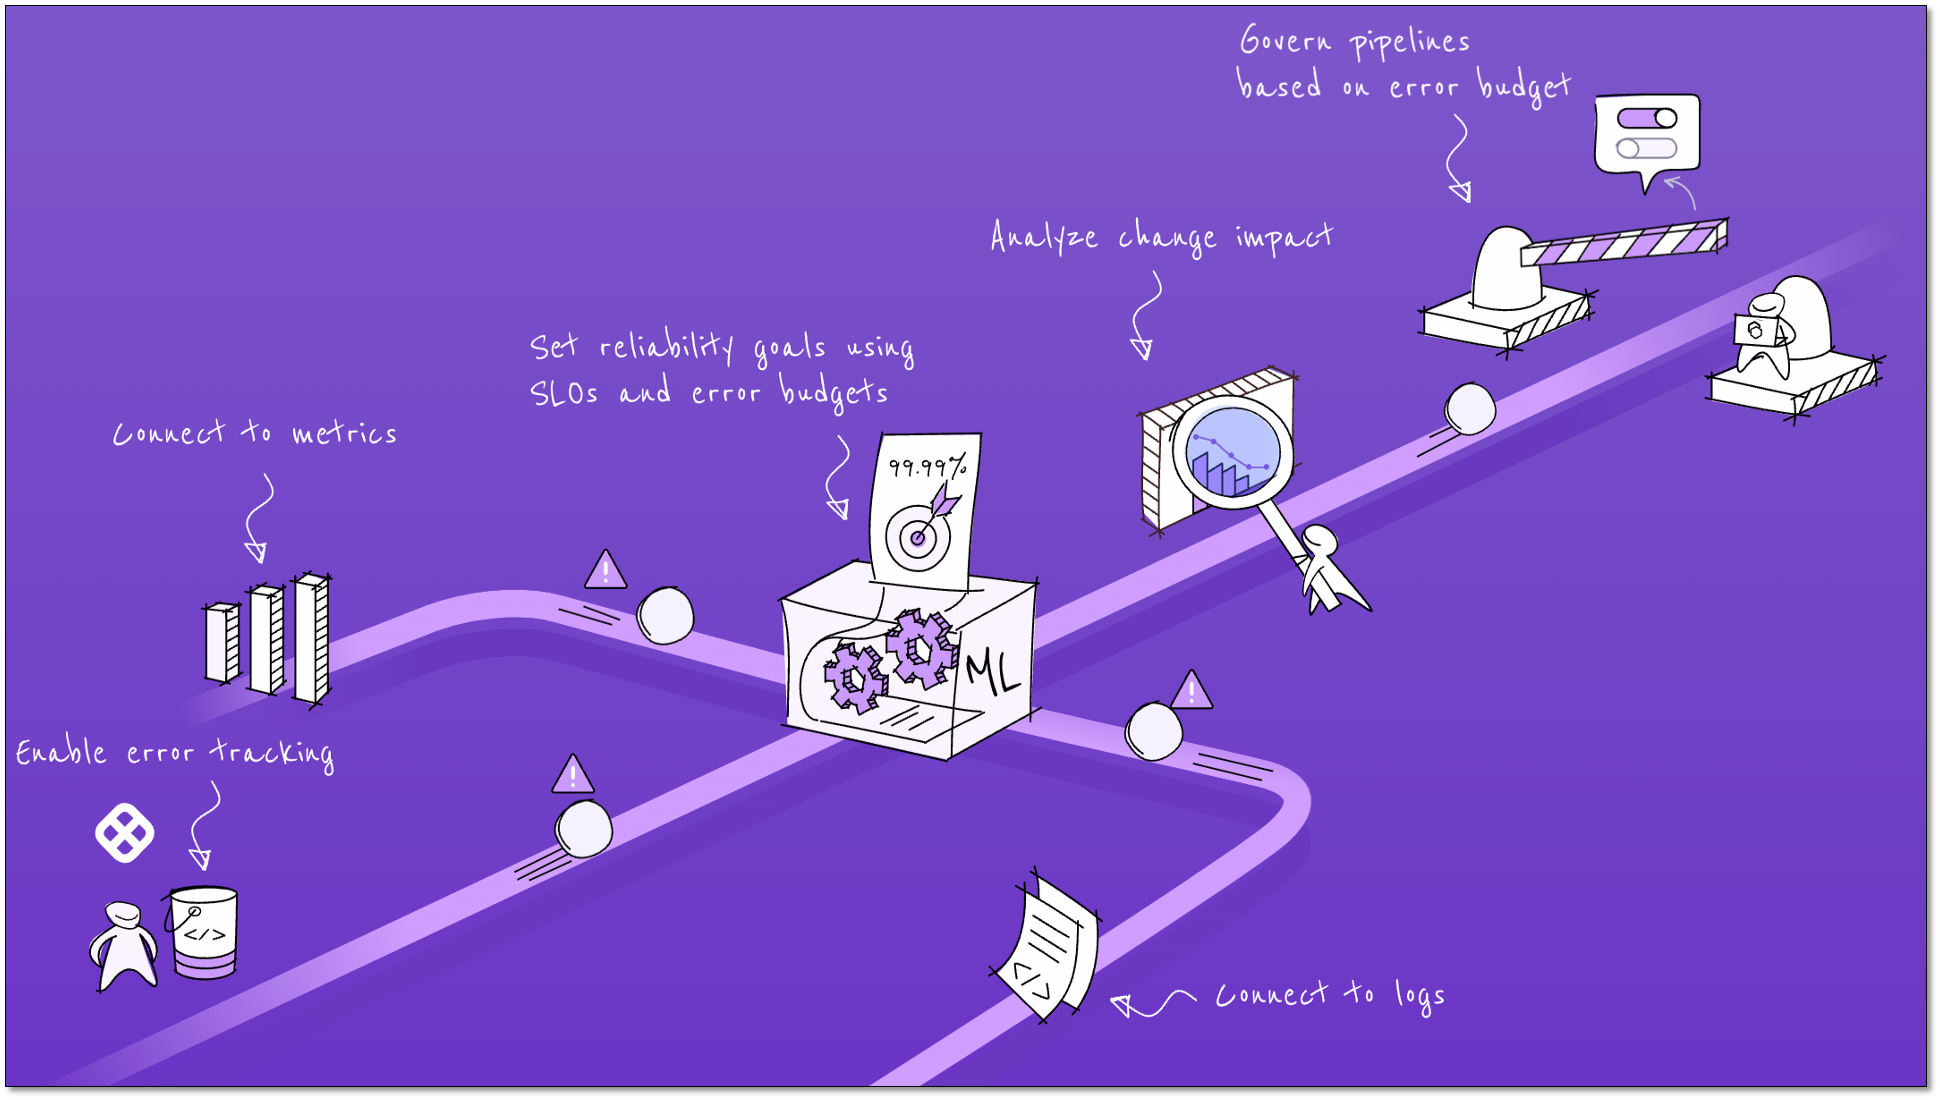 Govern pipelines
based on error budget
Analyze change impact
Set reliability goals using
SLOs and error budgets
Connect to metrics
99.99%
ML
Enable error tracking
</>
</>
Connect to logs